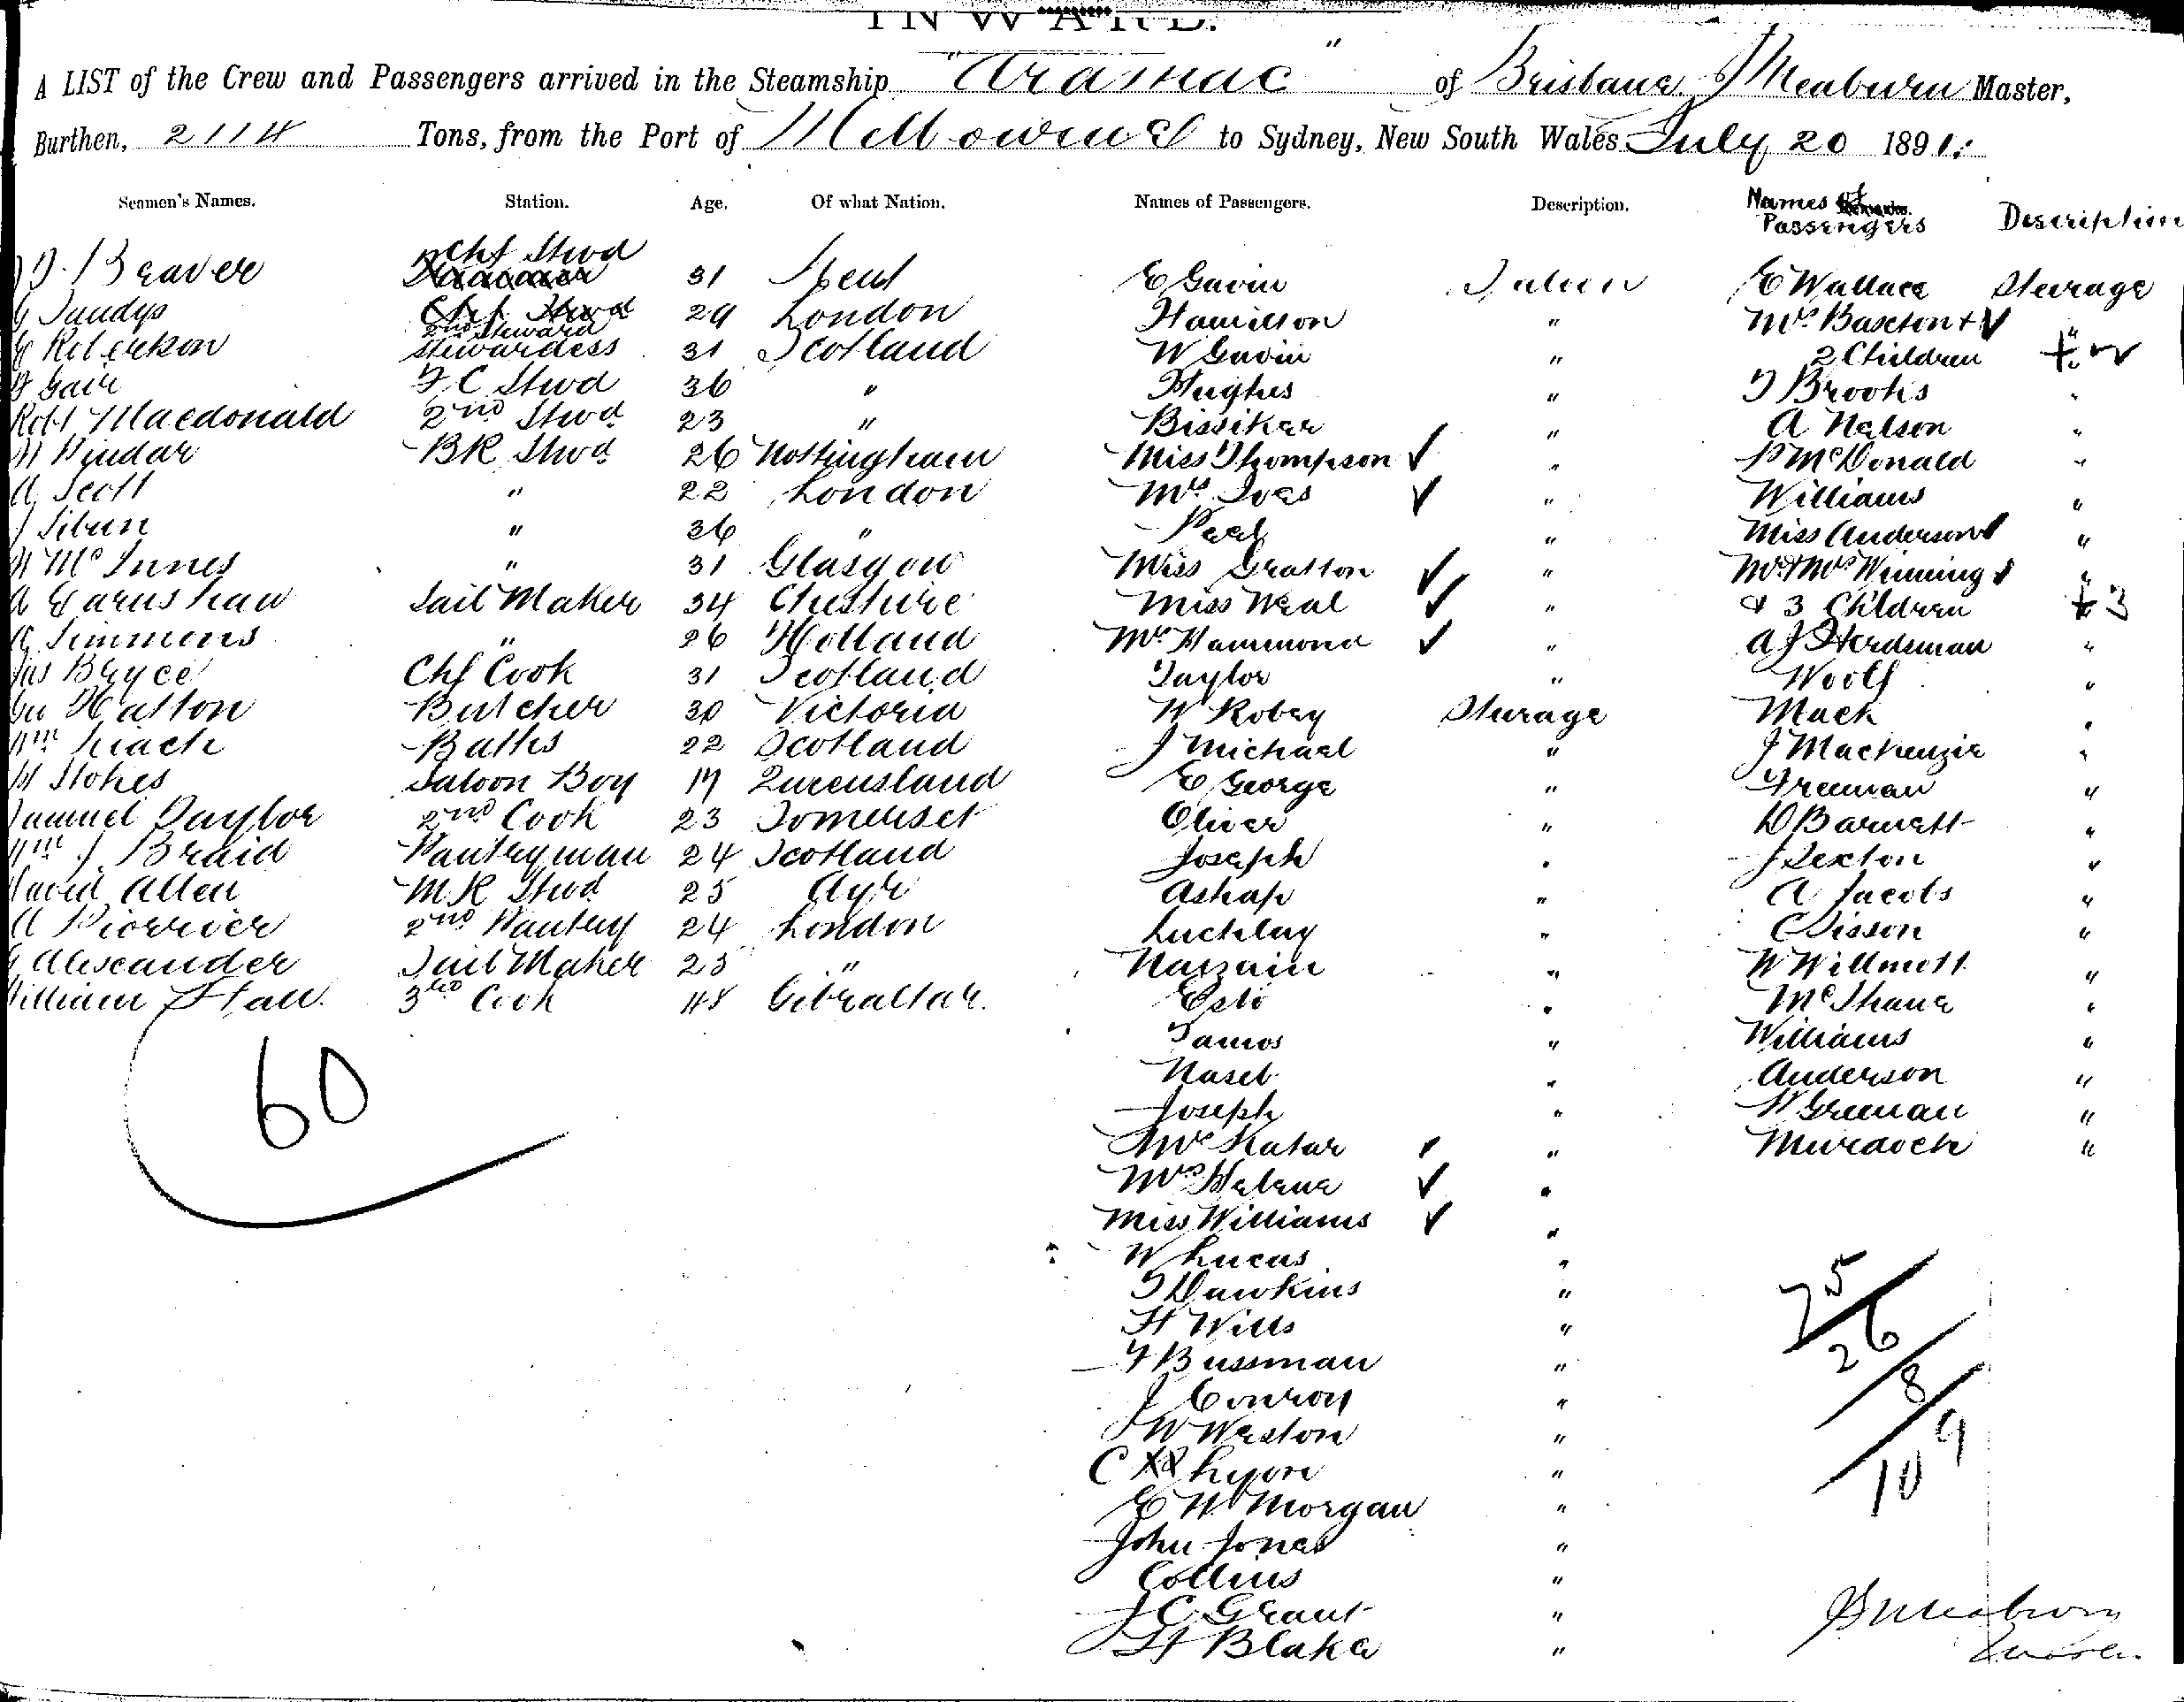 INWARD.
A LIST of the Crew and Passengers arrived in the Steamship "Aramac" of Brisbane Meaburn Master,
Burthen, 2114 Tons, from the Port of Melbourne to Sydney, New South Wales July 20 1891:
Seamen's Names. Station. Age. Of what Nation. Names of Passengers. Description. Names of Passengers Description
Beaver Chf Stwd 31 Kent E Gavin Saloon E Wallace Steerage
Sandys 2nd Steward 29 London Hamilton " Mrs Baxton +
Robertson Stewardess 31 Scotland W Gavin " 2 Children "
Gair F C Stwd 36 " Hughes " T Brooks "
Robt Macdonald 2nd Stwd 23 " Bissiker " A Nelson "
Pindar BR Stwd 26 Nottingham Miss Thompson " P McDonald "
A Scott " 22 London Mrs Ives " Williams "
J Sibun " 36 " Peel " Miss Anderson "
McInnes " 31 Glasgow Miss Gratton " Mr & Mrs Winning "
A Earnshaw Sail Maker 34 Cheshire Miss Weal " & 3 Children 3
Simmons " 26 Holland Mrs Hammond " A J Herdsman "
Jas Bryce Chf Cook 31 Scotland Taylor " Woolf "
Geo Hatton Butcher 30 Victoria W Robey Steerage Mack "
Wm Kiach Baths 22 Scotland J Michael " J Mackenzie "
Stokes Saloon Boy 17 Queensland E George " Freeman "
Samuel Taylor 2nd Cook 23 Somerset Oliver " D Barnett "
Wm J Braid Pantryman 24 Scotland Joseph " J Sexton "
David Allen MR Stwd 25 Ayr Ashap " A Jacobs "
A 2nd Pantry 24 London Luchlay " C Sisson "
G Alexander Sail Maker 25 " Nazzain " W Willmott "
William Stall. 3rd Cook 48 Gibraltar. Esti " McShane "
Tamos " Williams "
Naseb " Anderson "
Joseph " W Greenan "
Mrs Katar " Murdoch "
60
Mrs Helena "
Miss Williams "
W Lucas "
T Dawkins "
H Wills "
F Bussman "
J Conroy "
W Weston "
C Lyon "
E W Morgan "
John Jones "
Collins "
J C Grant "
H Blake "
25
26
8
9
10
J Meaburn